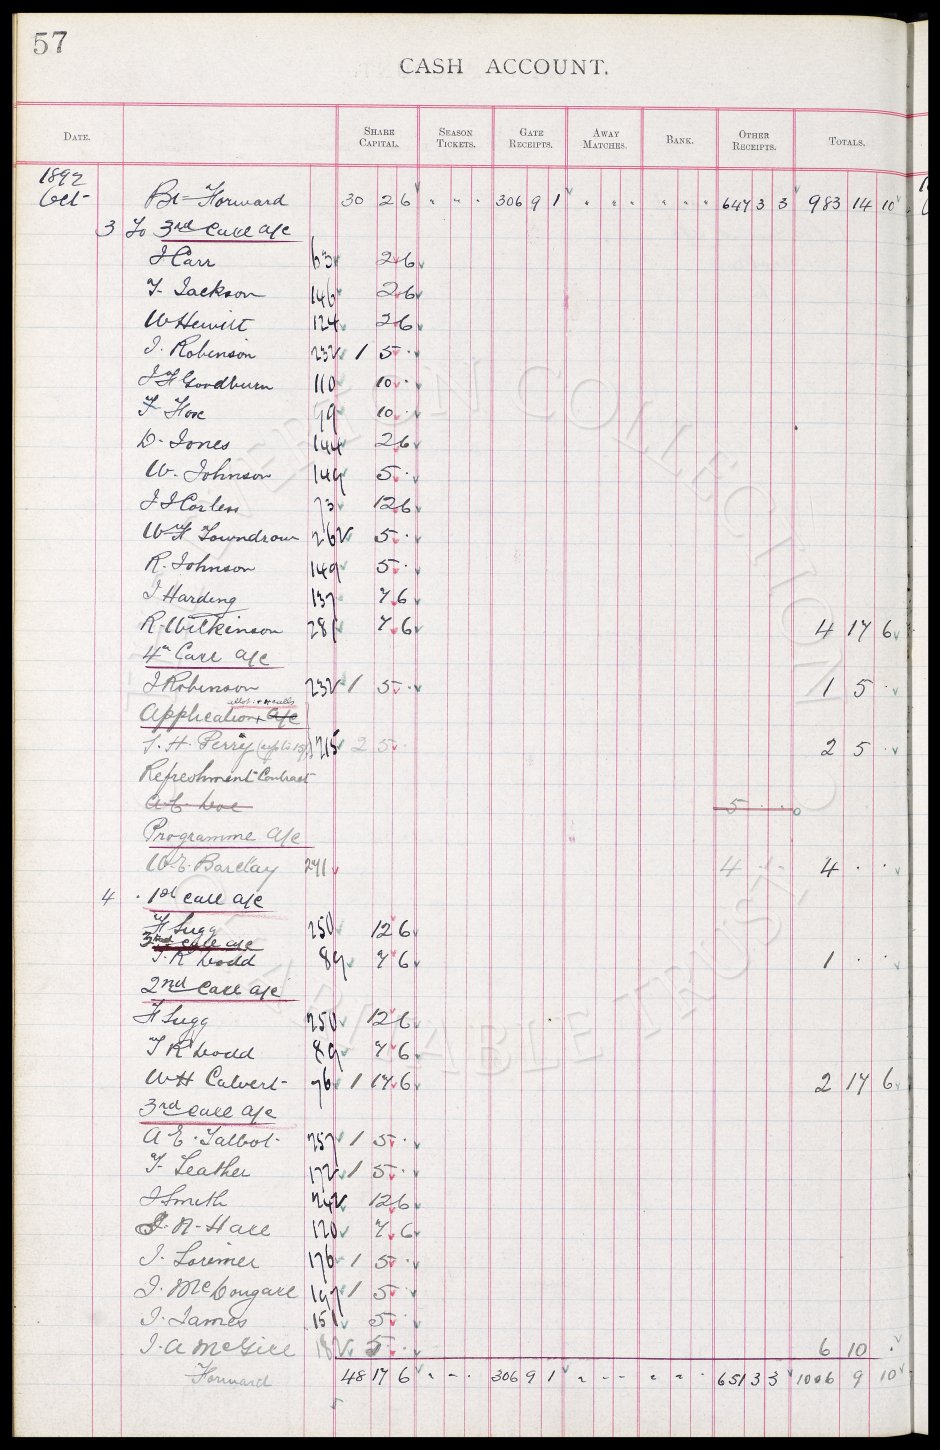 57
CASH ACCOUNT.
DATE. SHARE CAPITAL. SEASON TICKETS. GATE RECEIPTS. AWAY MATCHES. BANK. OTHER RECEIPTS. TOTALS.
1892
Oct Bt Forward 30 2 6 " " " 306 9 1 " " " " " " 647 3 3 983 14 10
3 To 3rd Call a/c
J Carr 63 2 6
T. Jackson 146 2 6
W Hewitt 124 2 6
J. Robinson 232 1 5 .
J H Goodburn 110 10 .
F. Fox 99 10 .
D. Jones 144 2 6
W. Johnson 149 5 .
J J Corless 73 12 6
W H Towndrow 262 5 .
R. Johnson 149 5 .
J Harding 137 7 6
R. Wilkinson 281 7 6 4 17 6
4th Call a/c
J Robinson 232 1 5 . 1 5 .
allot. + calls
Application + a/c
S. H. Perry 215 2 5 . 2 5 .
Refreshment Contract
5 . .
Programme a/c
W. E. Barclay 271 4 . . 4 . .
4 . 1st call a/c
H Sugg 250 12 6
3rd call a/c
T. R Dodd 89 7 6 1 . .
2nd Call a/c
H Sugg 250 12 6
T R Dodd 89 7 6
W H Calvert 76 1 17 6 2 17 6
3rd call a/c
A E. Talbot 257 1 5 .
T. Leather 172 1 5 .
J Smith 242 12 6
J. N. Hall 120 7 6
J. Lorimer 176 1 5 .
J. McDougall 197 1 5 .
J. James 151 5 .
J. A McGill 182 5 . 6 10 .
Forward 48 17 6 " - . 306 9 1 " - - " " . 651 3 3 1006 9 10
EVERTON COLLECTION CHARITABLE TRUST